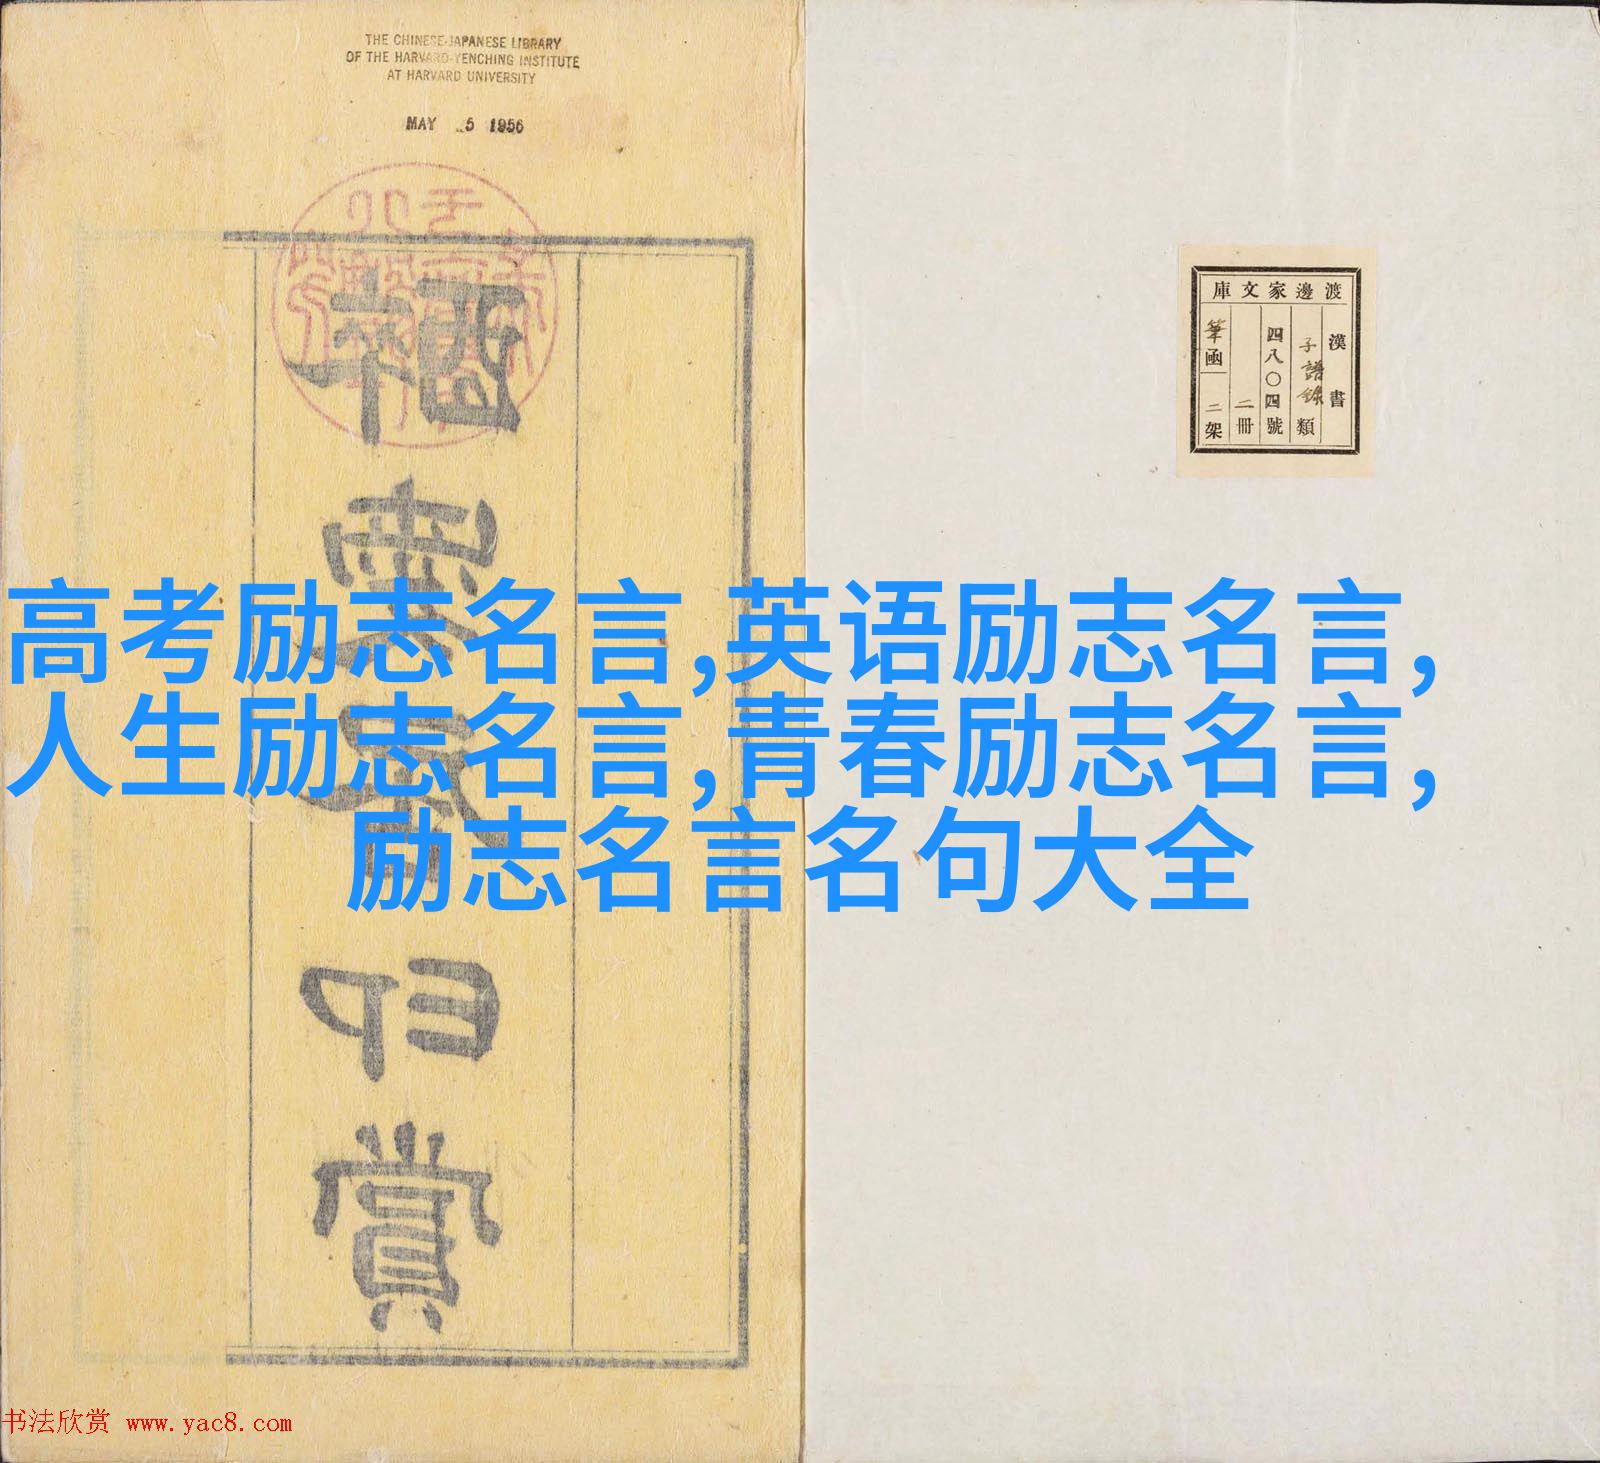 THE CHINESE-JAPANESE LIBRARY
OF THE HARVARD-YENCHING INSTITUTE
AT HARVARD UNIVERSITY
MAY 5 1956
渡邊家文庫
漢書
子語錄類
四八〇四號
二冊
筆函
二架
高考励志名言,英语励志名言,
人生励志名言,青春励志名言,
励志名言名句大全
书法欣赏 www.yac8.com